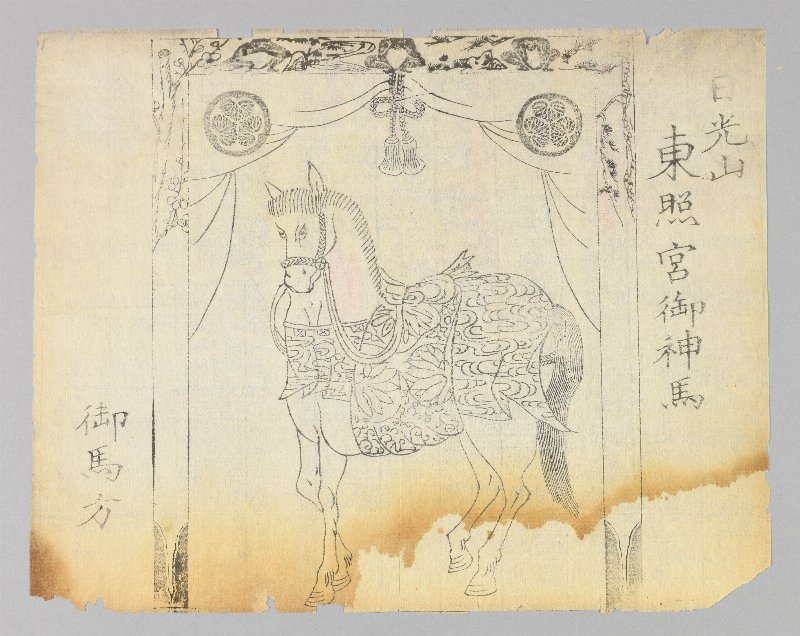 日光山
東照宮御神馬
御馬方